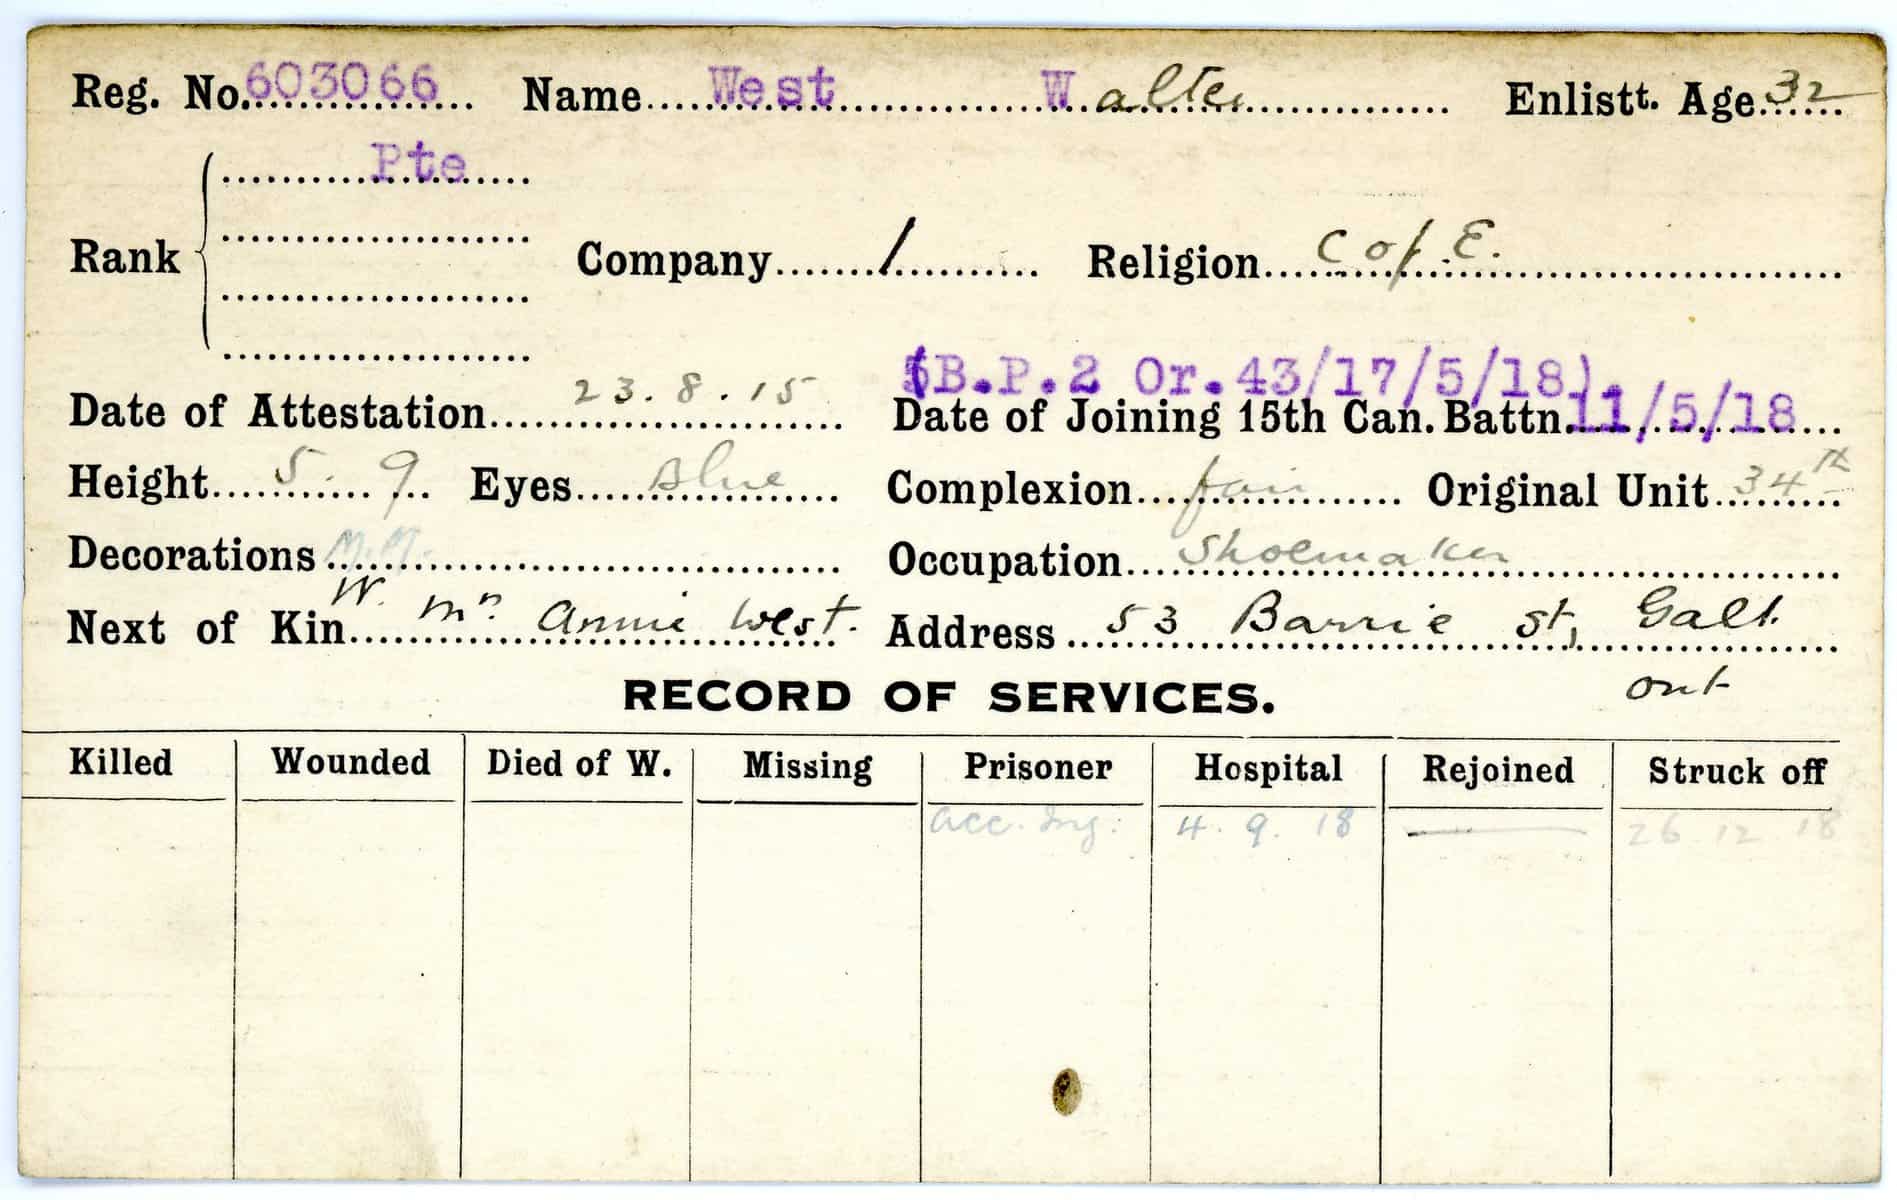 Reg. No. 603066 Name West Walter Enlistt. Age 32
Pte
Rank Company 1 Religion C of E.
(B.P.2 Or.43/17/5/18).
Date of Attestation 23.8.15 Date of Joining 15th Can. Battn. 11/5/18
Height 5. 9 Eyes Blue Complexion fair Original Unit 34th
Decorations M.M. Occupation Shoemaker
Next of Kin W. Mrs. Annie West. Address 53 Barrie St, Galt.
Ont
RECORD OF SERVICES.
Killed Wounded Died of W. Missing Prisoner Hospital Rejoined Struck off
Acc. Inj. 4. 9. 18 26 12 18